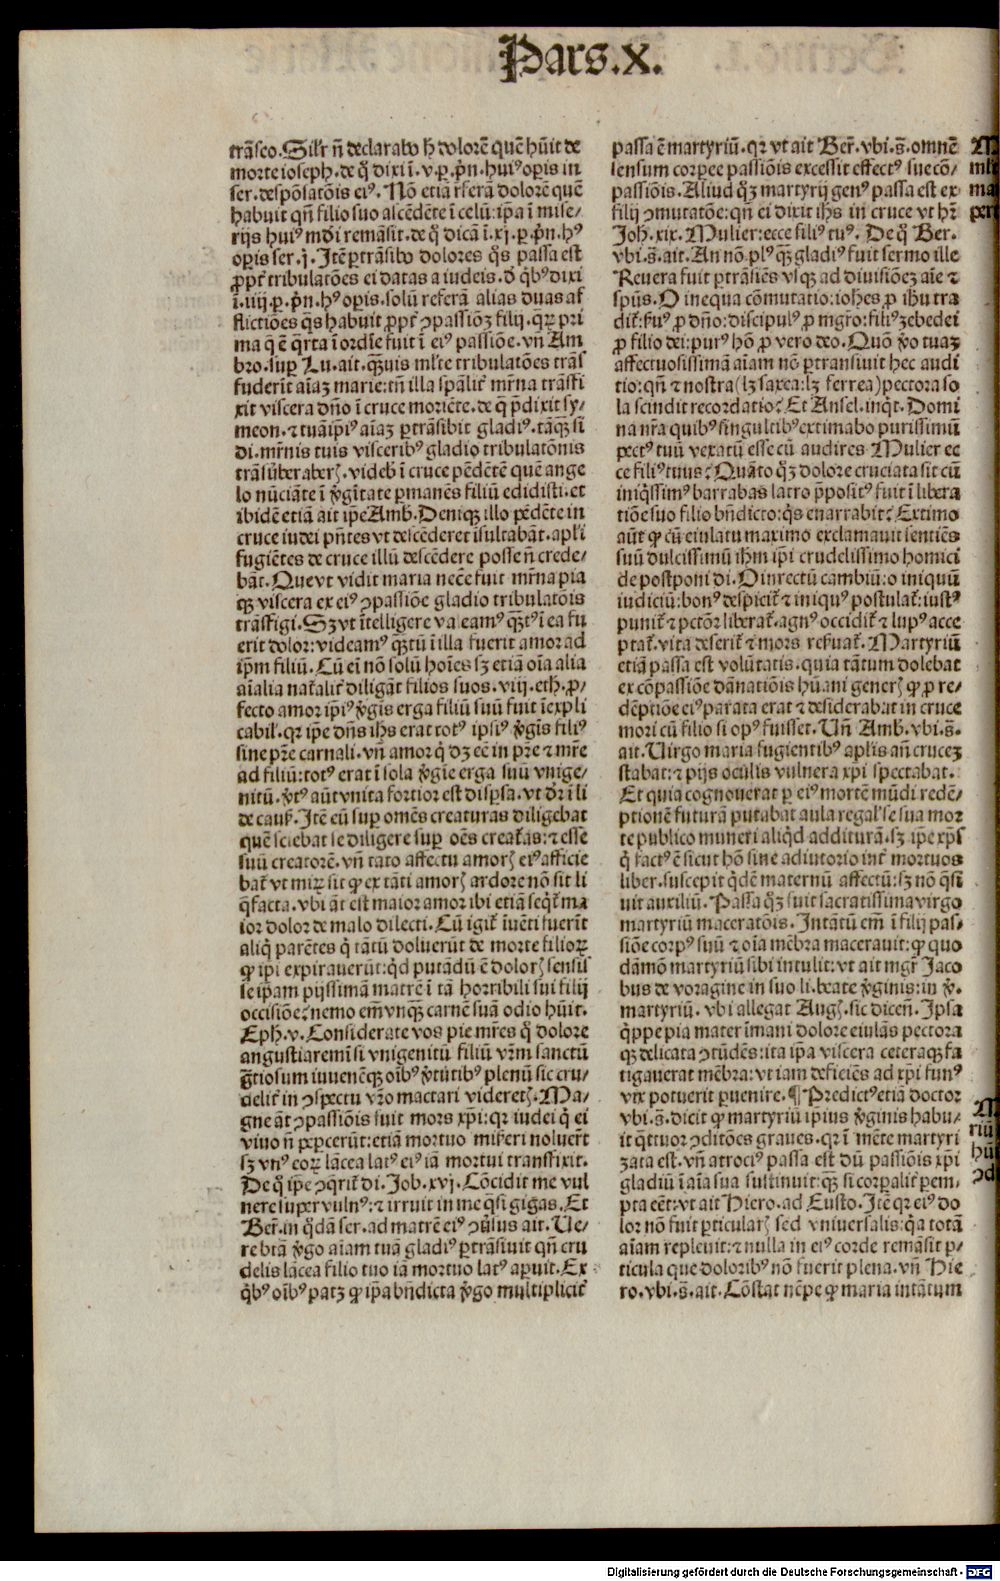 Pars.X.
trāseo. Silr̄ n̄ declarabo h̄ dolorē quē hūit de
morte ioseph. de q̄ dixi ī. v. p̲. p̄n. huiꝰ op̲is in
ser. despōsatōis eiꝰ. Nō etiā r̄ferā dolorē quē
habuit qn̄ filio suo ascēdēte ī celū: ip̄a ī mise⸗
rijs huiꝰ mōi remāsit. de q̄ dicā ī. xj. p̲. p̄n. hꝰ
op̲is ser. j. Itē p̲trāsibo dolores q̄s passa est
ꝓpt̄ tribulatōes ei datas a iudeis. d̄ q̄bꝰ dixi
ī. iiij. p̲. p̄n. hꝰ op̲is. solū referā alias duas af
flictiōes q̄s habuit ꝓpt̄ ꝯpassiōꝫ filij. qꝝ pri
ma q̄ ē q̄rta ī ordīe fuit ī eiꝰ passiōe. vn̄ Am
bro. sup̲ Lu. ait. q̄ꝫuis ml̄te tribulatōes trās
fuderīt aīaꝫ marie: tn̄ illa sp̄alit̄ mr̄na trāsfi
xit viscera dn̄o ī cruce moriēte. de q̄ p̄dixit sy⸗
meon. ⁊ tuā ip̄iꝰ aīaꝫ p̲trāsibit gladiꝰ. tāq̄ꝫ si
di. mr̄nis tuis visceribꝰ gladio tribulatōnis
trāsūberaberꝭ. videb̄ ī cruce pēdētē quē ange
lo nūciāte ī v̄gītate p̲manēs filiū edidisti. et
ibidē etiā ait ip̄e Amb̄. Deniqꝫ illo pēdēte in
cruce iudei pn̄tes vt descēderet īsultabāt. apl̄i
fugiētes de cruce illū descēdere posse n̄ crede⸗
bāt. Que vt vidit maria necē fuit mr̄na pia
qꝫ viscera ex eiꝰ ꝯpassiōe gladio tribulatōis
trāsfigi. Sꝫ vt ītelligere valeamꝰ q̄ꝫtꝰ ī ea fu
erit dolor: videamꝰ q̄ꝫtū ī illa fuerit amor ad
ip̄m filiū. Cū eī nō solū hoīes sꝫ etiā oīa alia
aīalia nat̄alit̄ diligāt filios suos. viij. eth. ꝓ⸗
fecto amor ip̄iꝰ v̄gīs erga filiū suū fuit īexpli
cabil'. qr ip̄e dn̄s ihs̄ erat totꝰ ipsiꝰ v̄gīs filiꝰ
sine pr̄e carnali. vn̄ amor q̄ dꝫ eē in pr̄e ⁊ mr̄e
ad filiū: totꝰ erat ī sola v̄gīe erga suū vnige⸗
nitū. v̄tꝰ aūt vnita fortior est disp̲sa. vt dr̄ ī li
de cauꝭ. Itē eū sup̲ omēs creaturas diligebat
quē sciebat se diligere sup̲ oēs creat̄as: ⁊ esse
suū creatorē. vn̄ tāto affectu amorꝭ eiꝰ afficie
bat̄ vt miꝝ sit ꝙ ex tāti amorꝭ ardore nō sit li
q̄facta. vbi āt est maior amor ibi etiā seq̄t̄ ma
ior dolor de malo dilecti. Cū igit̄ īuēti fuerīt
aliq̄ parētes q̄ tātū doluerūt de morte filioꝝ
ꝙ ip̄i expirauerūt: q̄d putādū ē dolorꝭ sensis
se ip̄am pijssimā matrē ī tā horribili sui filij
occisiōe? nemo em̄ vnq̄ꝫ carnē suā odio hūit.
Eph. v. Considerate vos pie mr̄es q̄ dolore
angustiaremī si vnigenitū filiū vr̄m sanctū
gr̄tiosum iuuenēqꝫ oībꝰ v̄tutibꝰ plenū sic cru⸗
delit̄ in ꝯspectu vr̄o mactari videretꝭ. Ma⸗
gne āt ꝯpassiōis fuit mors xp̄i: qr iudei q̄ ei
viuo n̄ pep̲cerūt: etiā mortuo mis̄eri noluer̄t
sꝫ vnꝰ eoꝝ lācea latꝰ eiꝰ iā mortui transfixit.
De q̄ ip̄e ꝯq̄rit̄ di. Job. xvj. Cōcidit me vul
nere super vulnꝰ: ⁊ irruit in me q̄si gigas. Et
Ber̄. in q̄dā ser. ad matrē eiꝰ ꝯūsus ait. Ue⸗
re btā v̄go aīam tuā gladiꝰ p̲trāsiuit qn̄ cru
delis lācea filio tuo iā mortuo latꝰ ap̲uit. Ex
q̄bꝰ oībꝰ patꝫ ꝙ ip̄a bn̄dicta v̄go multiplicit̄
passa ē martyriū. qr vt ait Ber̄. vbi. s̄. omnē
sensum corpee passiōis excessit effectꝰ sue cō⸗
passiōis. Aliud q̄ꝫ martyrij genꝰ passa est ex
filij ꝯmutatōe: qn̄ ei dixit ihs̄ in cruce vt hr̄
Joh̄. xix. Mulier: ecce filiꝰ tuꝰ. De q̄ Ber.
vbi. s̄. ait. An nō plꝰ q̄ꝫ gladiꝰ fuit sermo ille
Reuera fuit p̲trāsiēs vsqꝫ ad diuisiōeꝫ aīe ⁊
spūs. O inequa cōmutatio: iohēs ꝓ ihu tra
dit̄. ẜuꝰ ꝓ dn̄o: discipulꝰ ꝓ mgr̄o: filiꝰ zebedei
ꝓ filio dei: purꝰ hō ꝓ vero deo. Quō v̄o tuaꝫ
affectuosissimā aīam nō p̲transiuit hec audi
tio: qn̄ ⁊ nostra (lꝫ saxea: lꝫ ferrea) pectora so
la scindit recordatio? Et Ansel. inq̄t. Domi
na nr̄a quibꝰ singultibꝰ extimabo purissimū
pectꝰ tuū vexatū esse cū audires Mulier ec
ce filiꝰ tuus? Quāto q̄ꝫ dolore cruciata sit cū
iniq̄ssimꝰ barrabas latro p̄positꝰ fuit ī libera
tiōe suo filio bn̄dicto: q̄s enarrabit? Extimo
aūt ꝙ cū eiulatu maximo exclamauit sentiēs
suū dulcissimū ihm̄ ip̄i crudelissimo homici
de postponi di. O inrectū cambiū: o iniquū
iudiciū: bonꝰ despicit̄ ⁊ iniquꝰ postulat̄: iustꝰ
punit̄ ⁊ pctōr liberat̄. agnꝰ occidit̄ ⁊ lupꝰ acce
ptat̄. vita deserit̄ ⁊ mors reẜuat̄. Martyriū
etiā passa est volūtatis. quia tātum dolebat
ex cōpassiōe dānatiōis hūani generꝭ ꝙ p̲ re⸗
dēptiōe eiꝰ parata erat ⁊ desiderabat in cruce
mori cū filio si opꝰ fuisset. Un̄ Amb̄. vbi. s̄.
ait. Uirgo maria fugientibꝰ apl̄is an̄ cruceꝫ
stabat: ⁊ pijs oculis vulnera xp̄i spectabat.
Et quia cognouerat p̲ eiꝰ mortē mūdi redē⸗
ptionē futurā putabat aula regal' se sua mor
te publico muneri aliq̄d addituram. sꝫ ip̄e xp̄s
q̄ factꝰ ē sicut hō sine adiutorio int̄ mortuos
liber. suscepit q̄dē maternū affectū: sꝫ nō q̄si
uit auxiliū. Passa q̄ꝫ fuit sacratissima virgo
martyriū maceratōis. Intātū em̄ ī filij pas⸗
siōe corpꝰ suū ⁊ oīa mēbra macerauit: ꝙ quo
dāmō martyriū sibi intulit: vt ait mgr̄ Jaco
bus de voragine in suo li. beate v̄ginis: in v̄.
martyriū. vbi allegat Augꝭ. sic dicen̄. Ipsa
q̄ppe pia mater īmani dolore eiulās pectora
qꝫ delicata ꝯtūdēs: ita ip̄a viscera ceteraqꝫ fa
tigauerat mēbra: vt iam deficiēs ad xp̄i funꝰ
vix potuerit p̲uenire. ¶ Predictꝰ etiā doctor
vbi. s̄. dicit ꝙ martyriū ipsius v̄ginis habu⸗
it q̄ttuor ꝯditōes graues. qr ī mēte martyri
zata est. vn̄ atrociꝰ passa est dū passiōis xp̄i
gladiū ī aīa sua sustinuit: q̄ꝫ si corp̲alit̄ p̲em⸗
pta eēt: vt ait Hiero. ad Eusto. Itē qr eiꝰ do
lor nō fuit p̲ticularꝭ sed vniuersalis: q̄a totā
aīam repleuit: ⁊ nulla in eiꝰ corde remāsit p̲⸗
ticula que doloribꝰ nō fuerit plena. vn̄ Hie
ro. vbi. s̄. ait. Cōstat nēpe ꝙ maria intātum
Digitalisierung gefördert durch die Deutsche Forschungsgemeinschaft - DFG